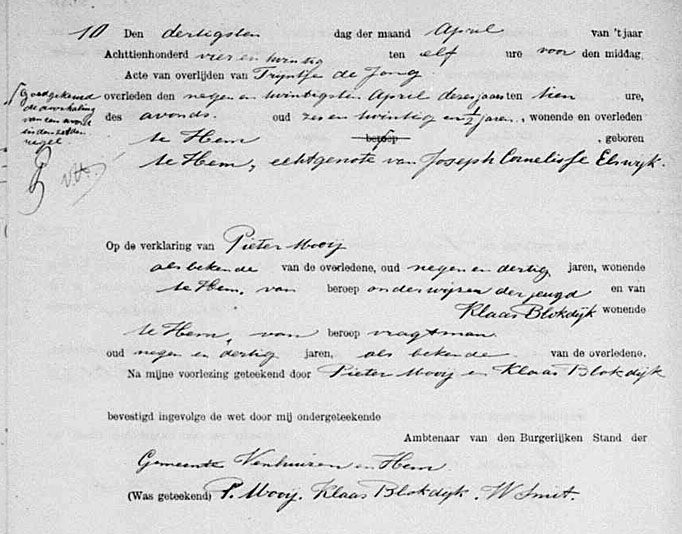 10 Den dertigsten dag der maand April van 't jaar
Achttienhonderd vier en twintig ten elf ure voor den middag,
Acte van overlijden van Trijntje de Jong
overleden den negen en twintigsten April dezes jaars ten tien ure,
des avonds. oud zes en twintig en ½ jaren, wonende en overleden
te Hem beroep , geboren
te Hem, echtgenote van Joseph Cornelisse Elswyk.
Goedgekeurd
de doorhaling
van een woord
in den zesden
regel
Op de verklaring van Pieter Mooij
als bekende van de overledene, oud negen en dertig jaren, wonende
te Hem, van beroep onderwijzer der jeugd en van
Klaas Blokdijk wonende
te Hem, van beroep vragtman
oud negen en dertig jaren, als bekende van de overledene.
Na mijne voorlezing geteekend door Pieter Mooij en Klaas Blokdijk
bevestigd ingevolge de wet door mij ondergeteekende
Ambtenaar van den Burgerlijken Stand der
Gemeente Venhuizen en Hem
(Was geteekend) P. Mooij. Klaas Blokdijk. W Smit.